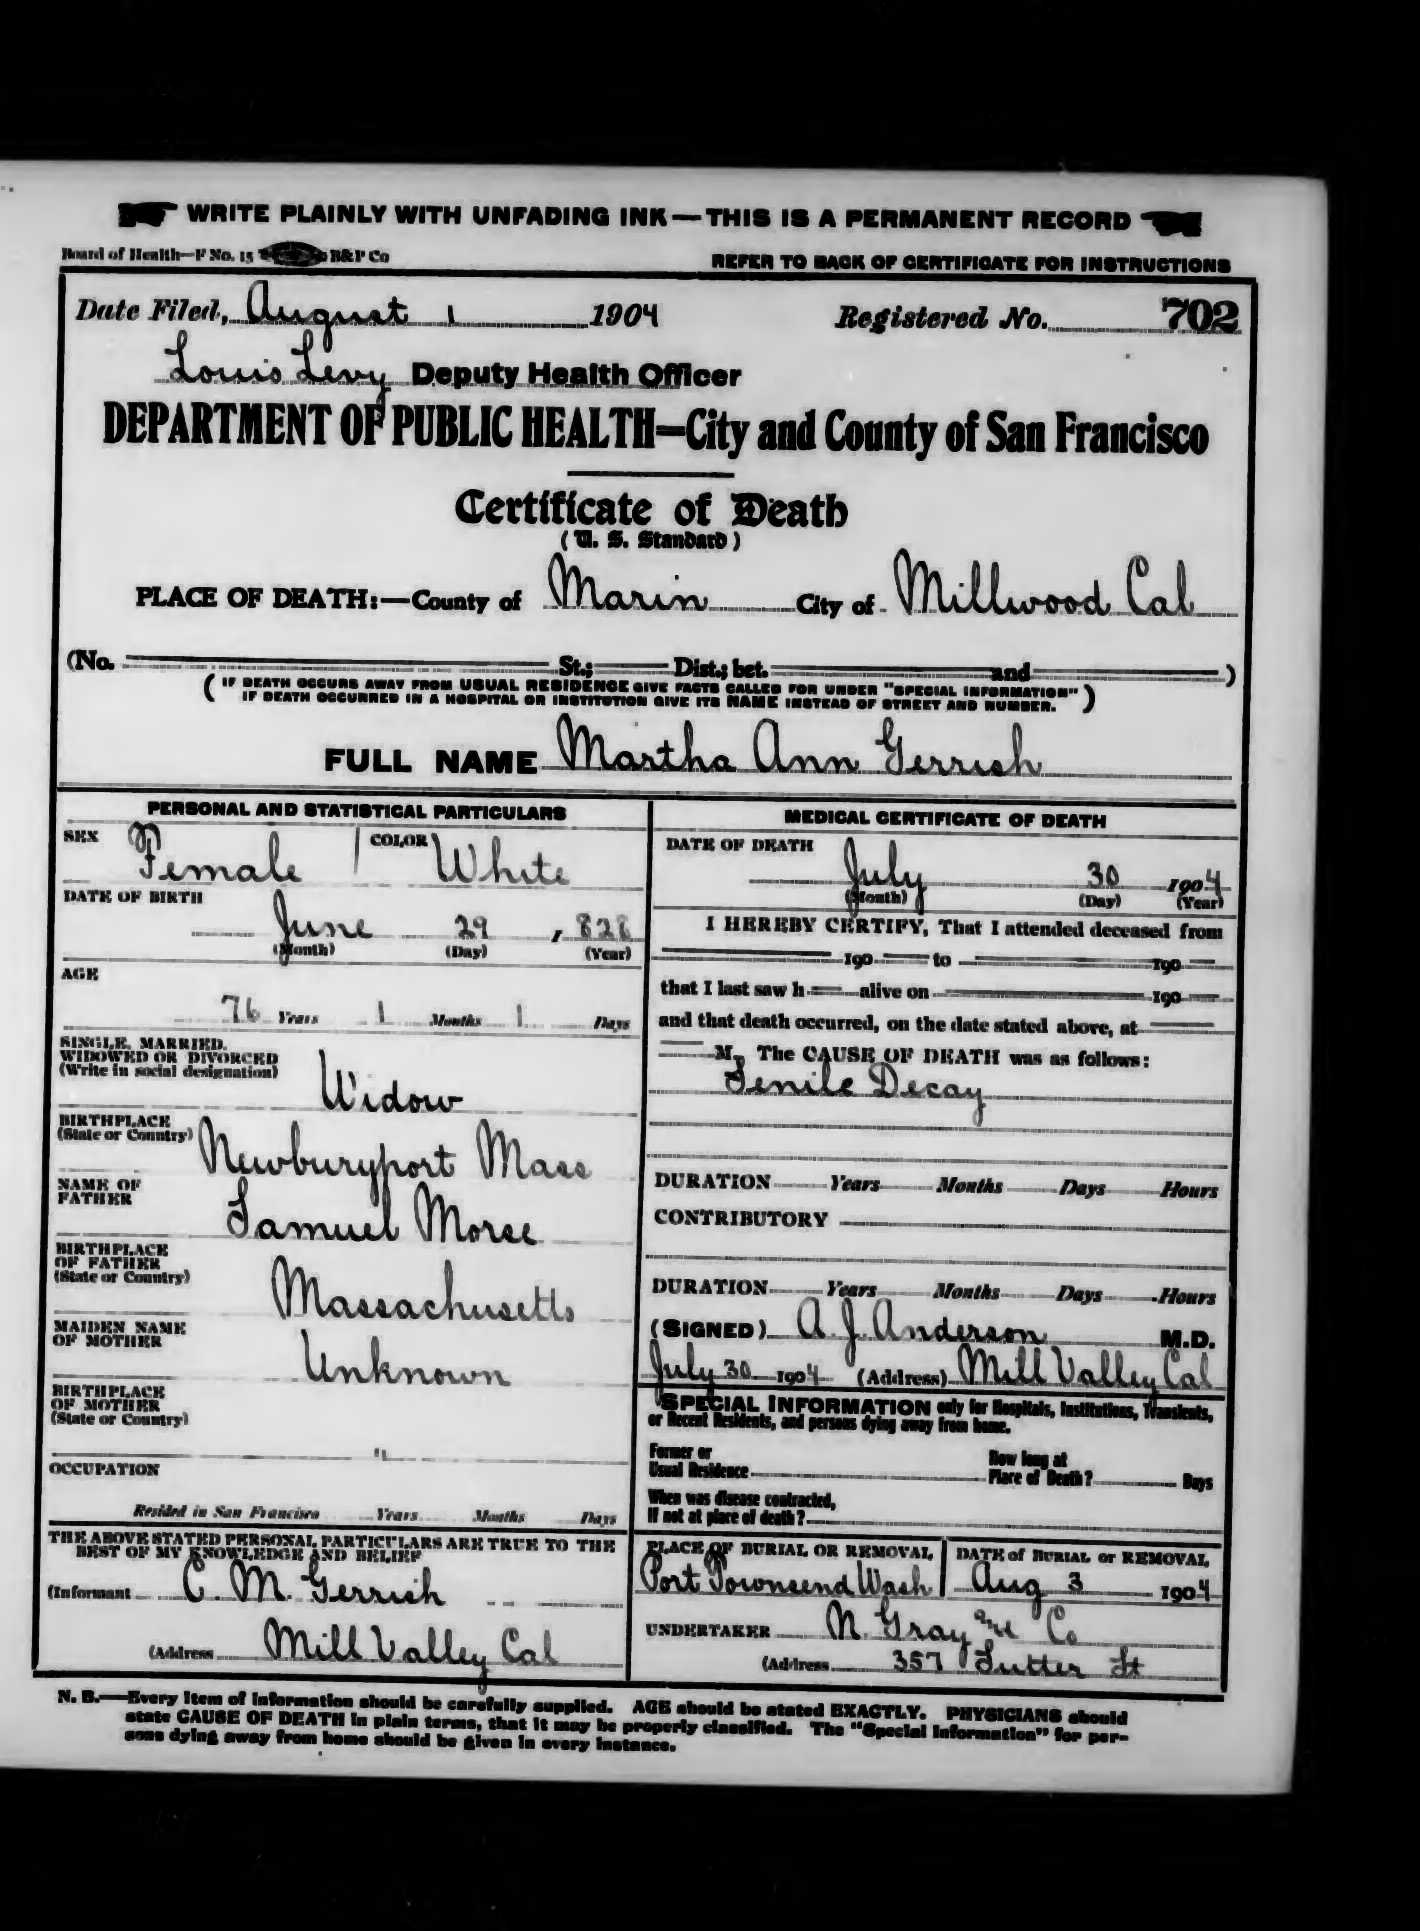 WRITE PLAINLY WITH UNFADING INK—THIS IS A PERMANENT RECORD
Board of Health—F No. 15 B&P Co
REFER TO BACK OF CERTIFICATE FOR INSTRUCTIONS
Date Filed, August 1 1904 Registered No. 702
Louis Levy Deputy Health Officer
DEPARTMENT OF PUBLIC HEALTH=City and County of San Francisco
Certificate of Death
(U. S. Standard)
PLACE OF DEATH:—County of Marin City of Millwood Cal
(No. St.; Dist.; bet. and )
(IF DEATH OCCURS AWAY FROM USUAL RESIDENCE GIVE FACTS CALLED FOR UNDER "SPECIAL INFORMATION"
IF DEATH OCCURRED IN A HOSPITAL OR INSTITUTION GIVE ITS NAME INSTEAD OF STREET AND NUMBER.)
FULL NAME Martha Ann Gerrish
PERSONAL AND STATISTICAL PARTICULARS
SEX Female COLOR White
DATE OF BIRTH
June 29, 828
(Month) (Day) (Year)
AGE
76 Years 1 Months 1 Days
SINGLE, MARRIED,
WIDOWED OR DIVORCED
(Write in social designation)
Widow
BIRTHPLACE
(State or Country)
Newburyport Mass
NAME OF
FATHER
Samuel Morse
BIRTHPLACE
OF FATHER
(State or Country)
Massachusetts
MAIDEN NAME
OF MOTHER
Unknown
BIRTHPLACE
OF MOTHER
(State or Country)
"
OCCUPATION
Resided in San Francisco Years Months Days
THE ABOVE STATED PERSONAL PARTICULARS ARE TRUE TO THE
BEST OF MY KNOWLEDGE AND BELIEF
(Informant C. M. Gerrish
(Address Mill Valley Cal
MEDICAL CERTIFICATE OF DEATH
DATE OF DEATH
July 30 1904
(Month) (Day) (Year)
I HEREBY CERTIFY, That I attended deceased from
190 to 190
that I last saw h alive on 190
and that death occurred, on the date stated above, at
M. The CAUSE OF DEATH was as follows:
Senile Decay
DURATION Years Months Days Hours
CONTRIBUTORY
DURATION Years Months Days Hours
(SIGNED) A. J. Anderson M.D.
July 30 1904 (Address) Mill Valley Cal
SPECIAL INFORMATION only for Hospitals, Institutions, Transients,
or Recent Residents, and persons dying away from home.
Former or
Usual Residence
How long at
Place of Death? Days
When was disease contracted,
If not at place of death?
PLACE OF BURIAL OR REMOVAL
Port Townsend Wash
DATE of BURIAL or REMOVAL
Aug 3 1904
UNDERTAKER N. Gray and Co
(Address 357 Sutter St
N. B.—Every item of information should be carefully supplied. AGE should be stated EXACTLY. PHYSICIANS should
state CAUSE OF DEATH in plain terms, that it may be properly classified. The "Special Information" for per-
sons dying away from home should be given in every instance.